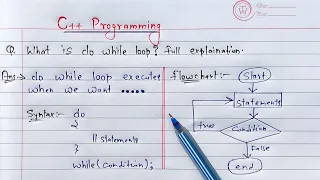 C++ Programming
Q. What is do while loop? full explaination.
Ans:- do while loop executes
when we want .....
Syntax:- do
{
// statements
}
while(condition);
flowchart:-
Start
Statements
true
Condition
False
end